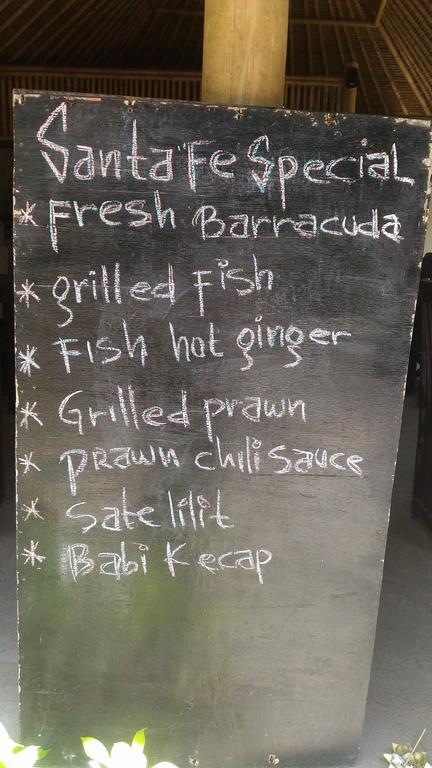 Santa Fe Special
* Fresh Barracuda
* grilled Fish
* Fish hot ginger
* Grilled prawn
* prawn chili sauce
* Sate lilit
* Babi Kecap